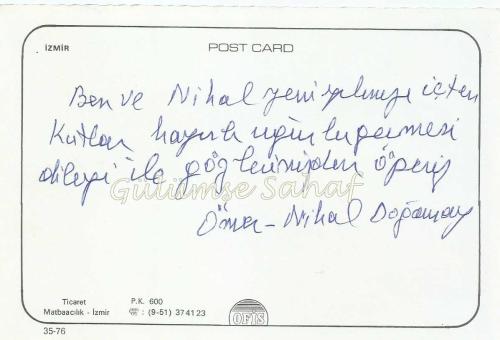 İZMİR
POST CARD
Ben ve Nihal yeni yılınızı içten
Kutlar hayırlı uğurlu geçmesi
dileği ile gözlerinizden öperiz
Gülümse Sahaf
Ömer - Nihal
Ticaret
Matbaacılık - İzmir
P.K. 600
☎ : (9-51) 374123
OFİS
35-76